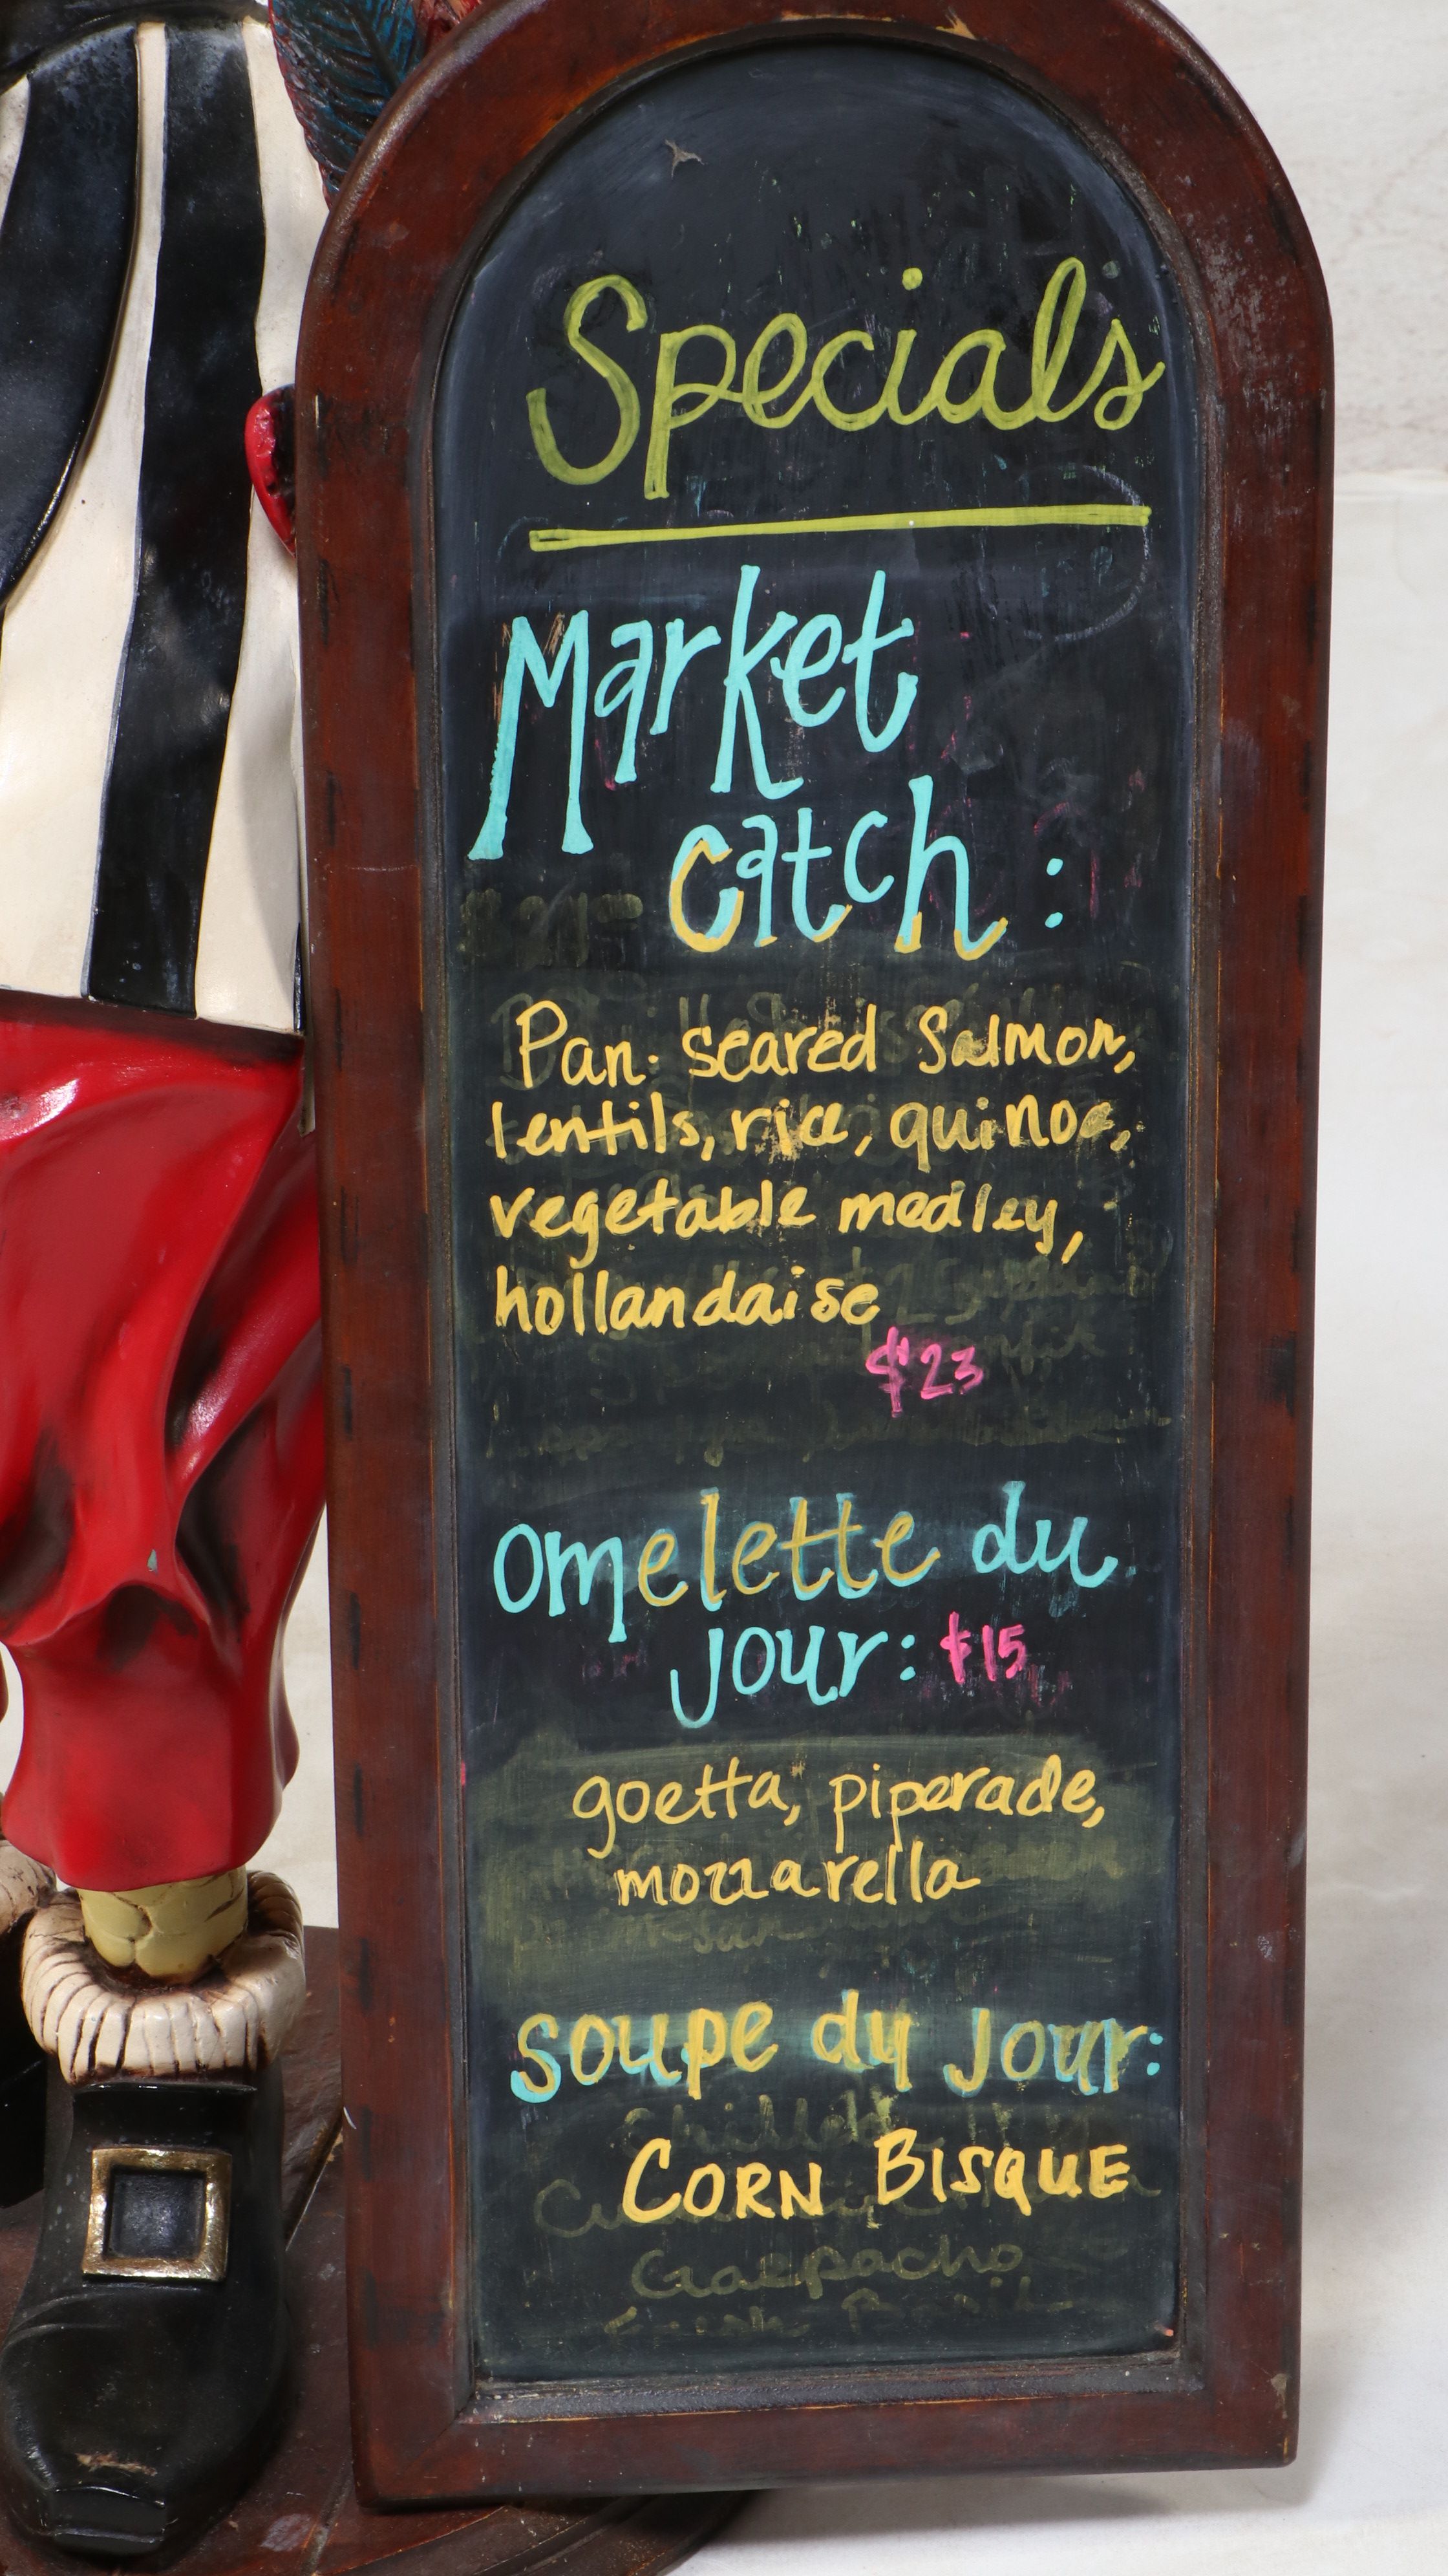 Specials
Market
catch:
Pan-seared Salmon,
lentils, rice, quinoa,
vegetable medley,
hollandaise
$23
omelette du
jour: $15
goetta, piperade,
mozzarella
soupe du jour:
CORN BISQUE
Gazpacho